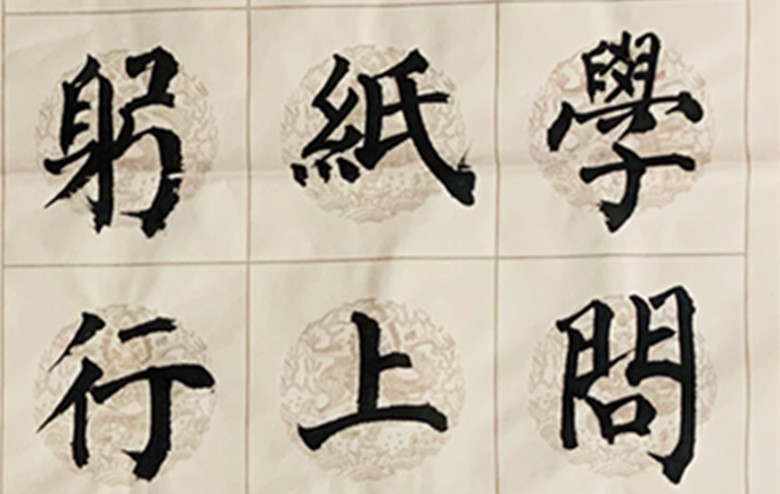 學問
紙上
躬行